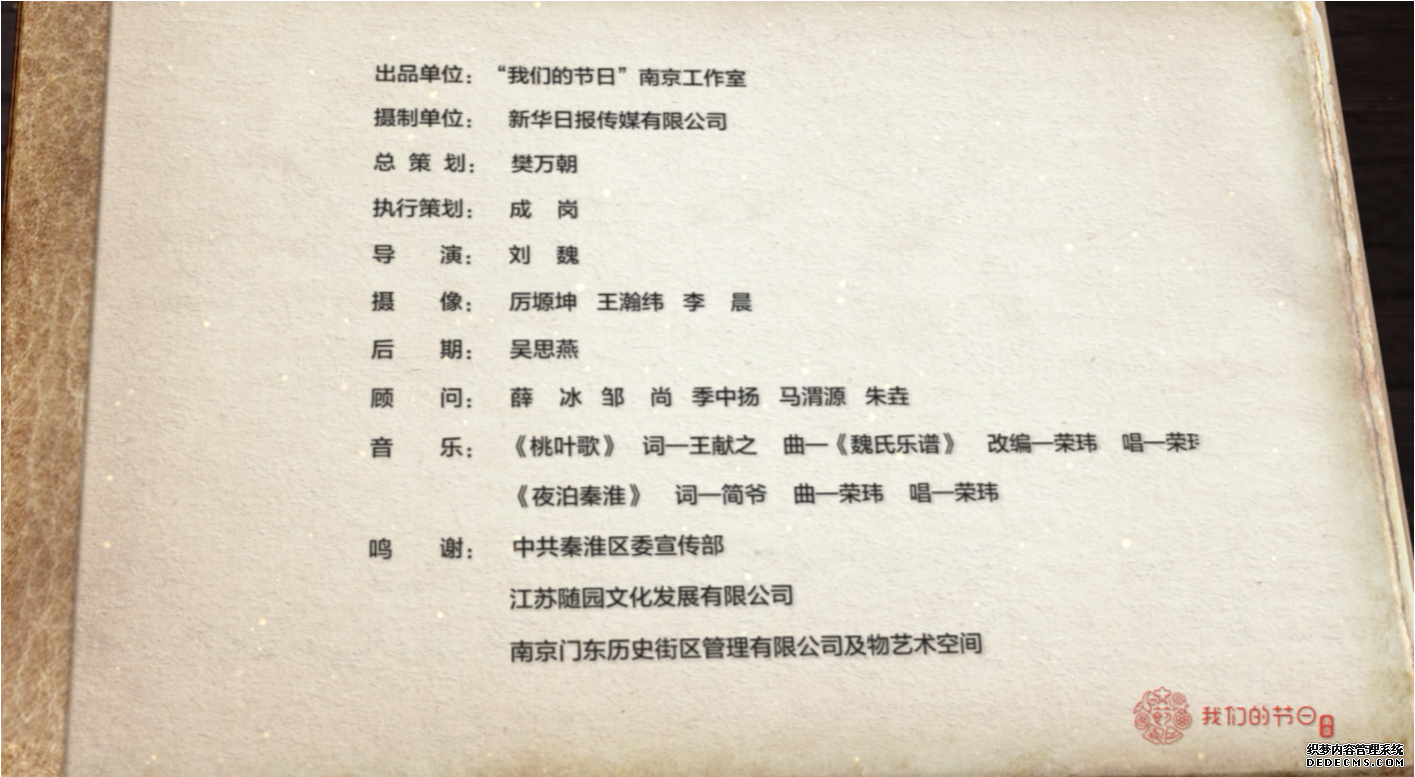 出品单位：“我们的节日”南京工作室
摄制单位：新华日报传媒有限公司
总 策 划：樊万朝
执行策划：成 岗
导 演：刘 魏
摄 像：厉塬坤 王瀚纬 李 晨
后 期：吴思燕
顾 问：薛 冰 邹 尚 季中扬 马渭源 朱垚
音 乐：《桃叶歌》 词—王献之 曲—《魏氏乐谱》 改编—荣玮 唱—荣
《夜泊秦淮》 词—简爷 曲—荣玮 唱—荣玮
鸣 谢：中共秦淮区委宣传部
江苏随园文化发展有限公司
南京门东历史街区管理有限公司及物艺术空间
我们的节日
织梦内容管理系统
DEDECMS.COM